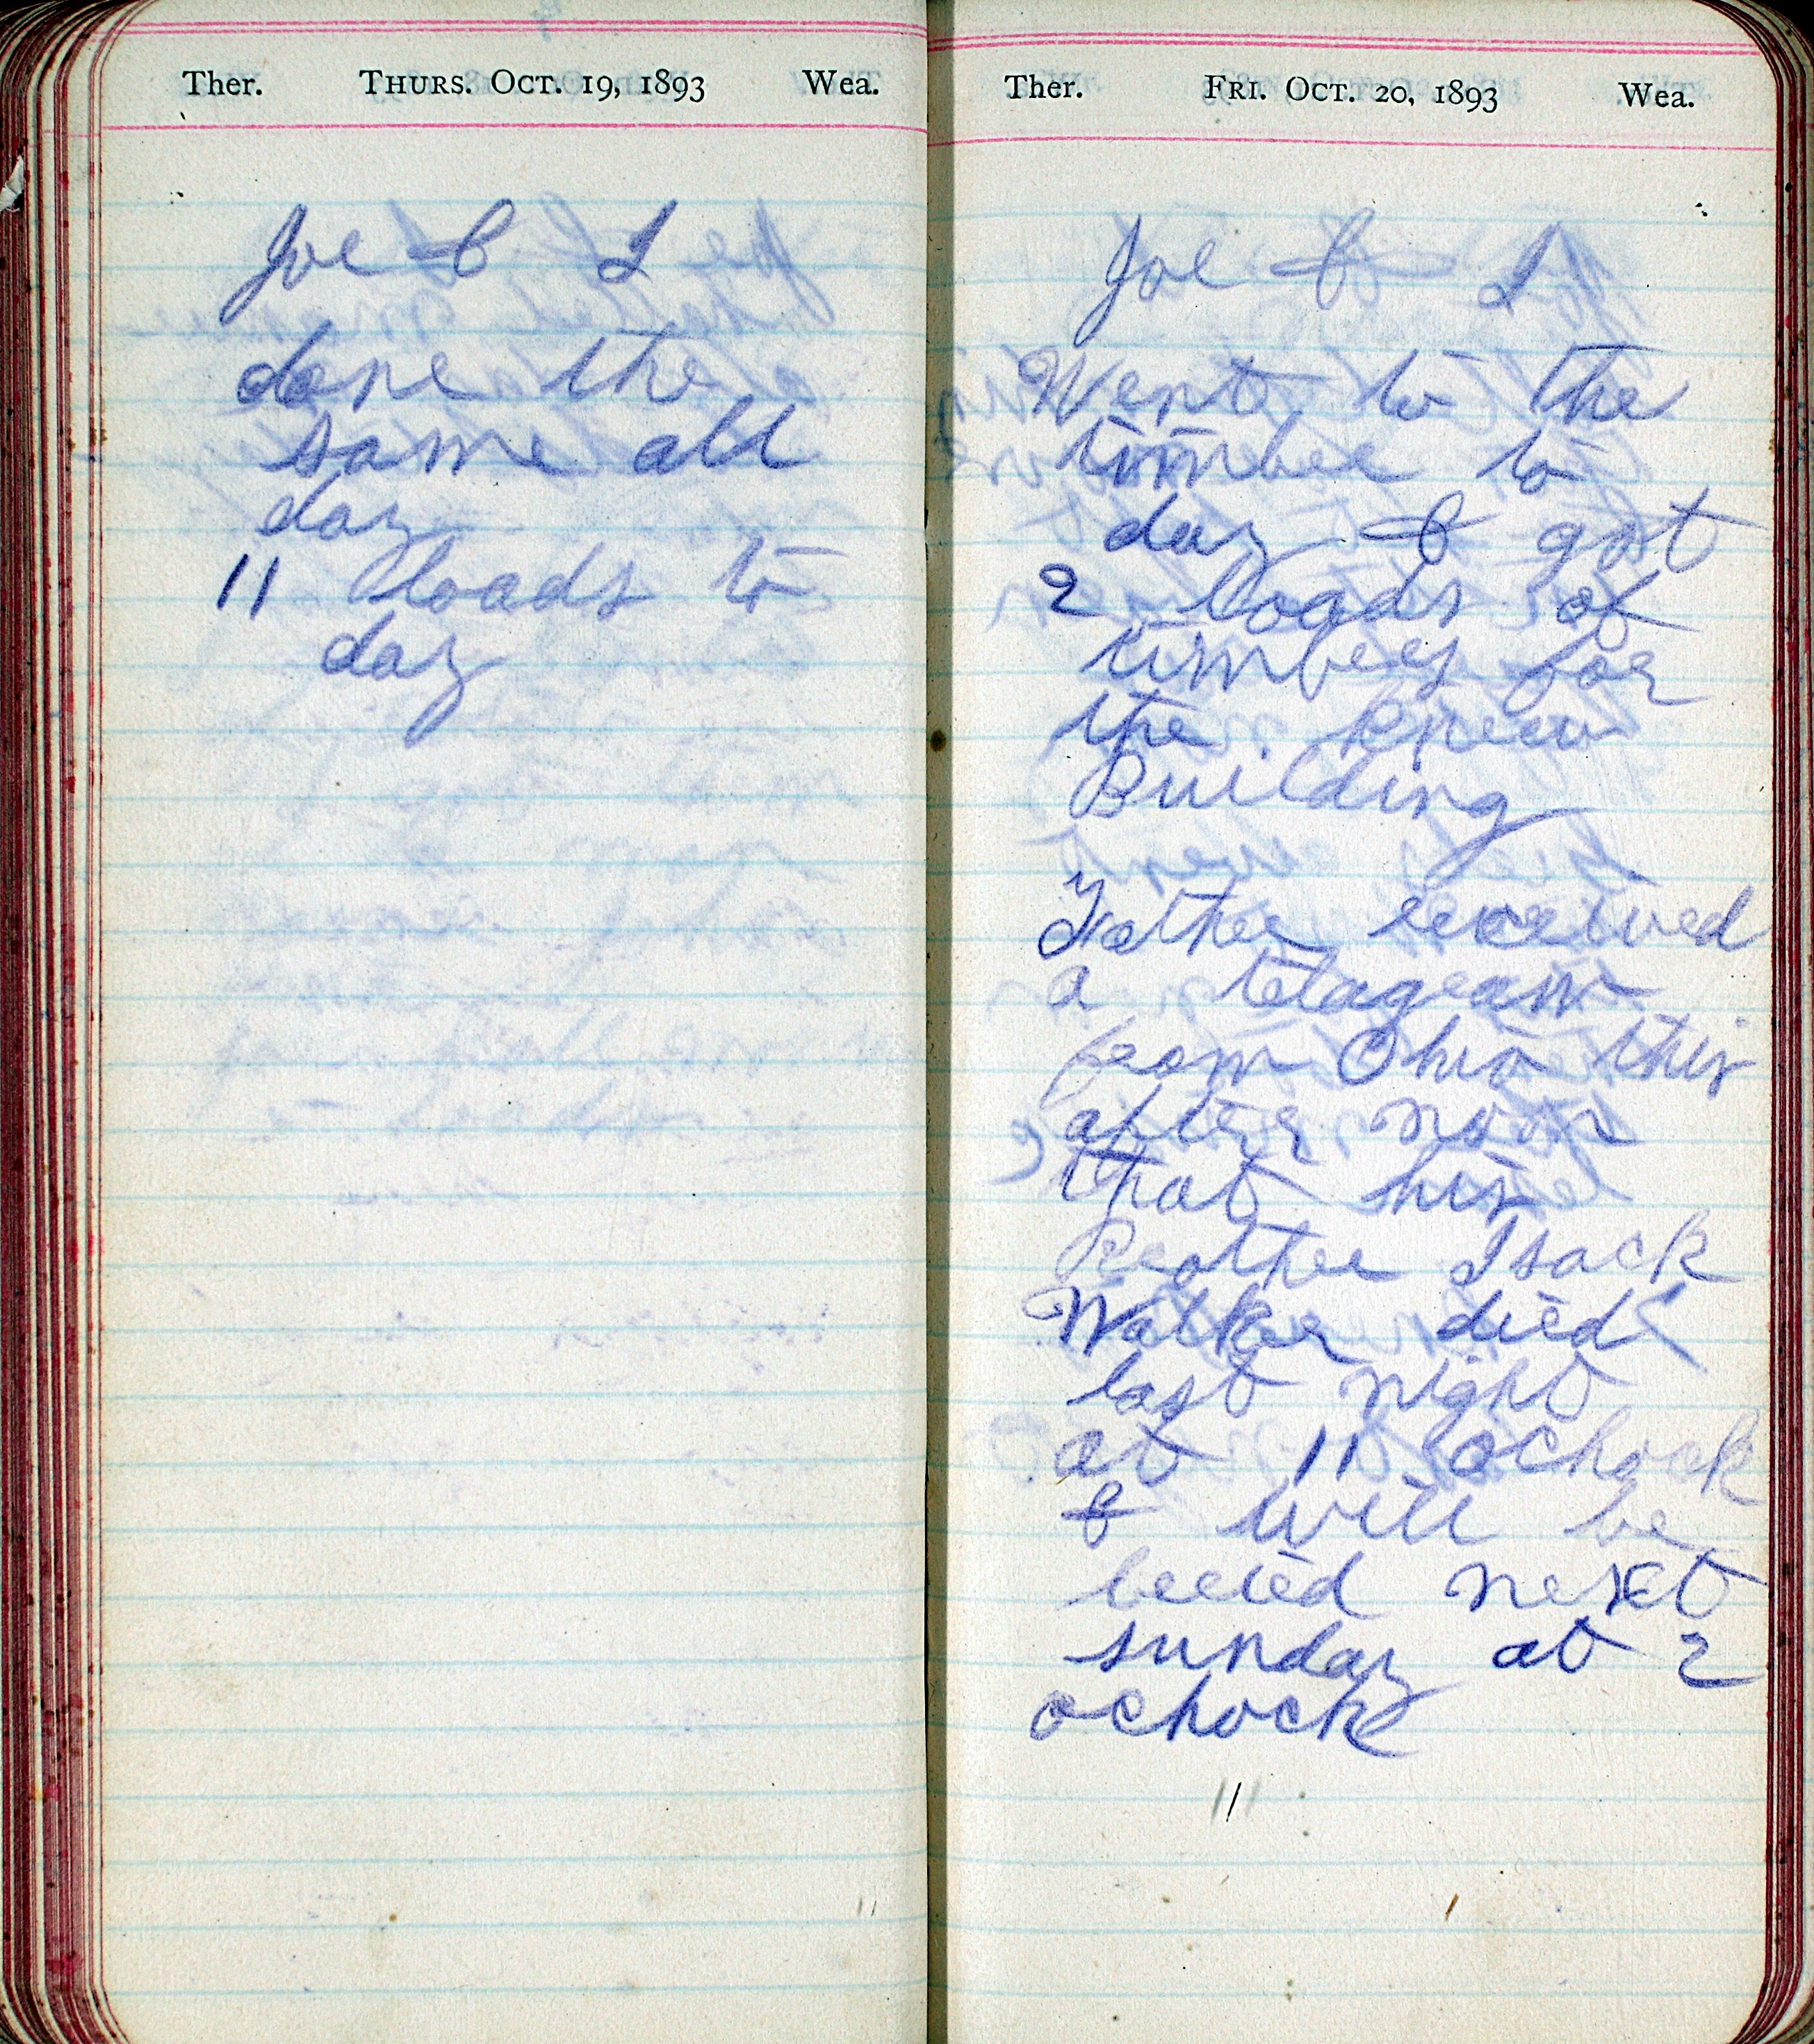 Ther. THURS. OCT. 19, 1893 Wea.
Joe & I
done the
same all
day
11 loads to
day
Ther. FRI. OCT. 20, 1893 Wea.
Joe & I
Went to the
timber to
day & got
2 loads of
timbers for
the knew
Building
Father received
a telagram
from Ohio this
after noon
that his
Brother Isack
Walker died
last night
at 11 oclock
& will be
beried next
sunday at 2
oclock